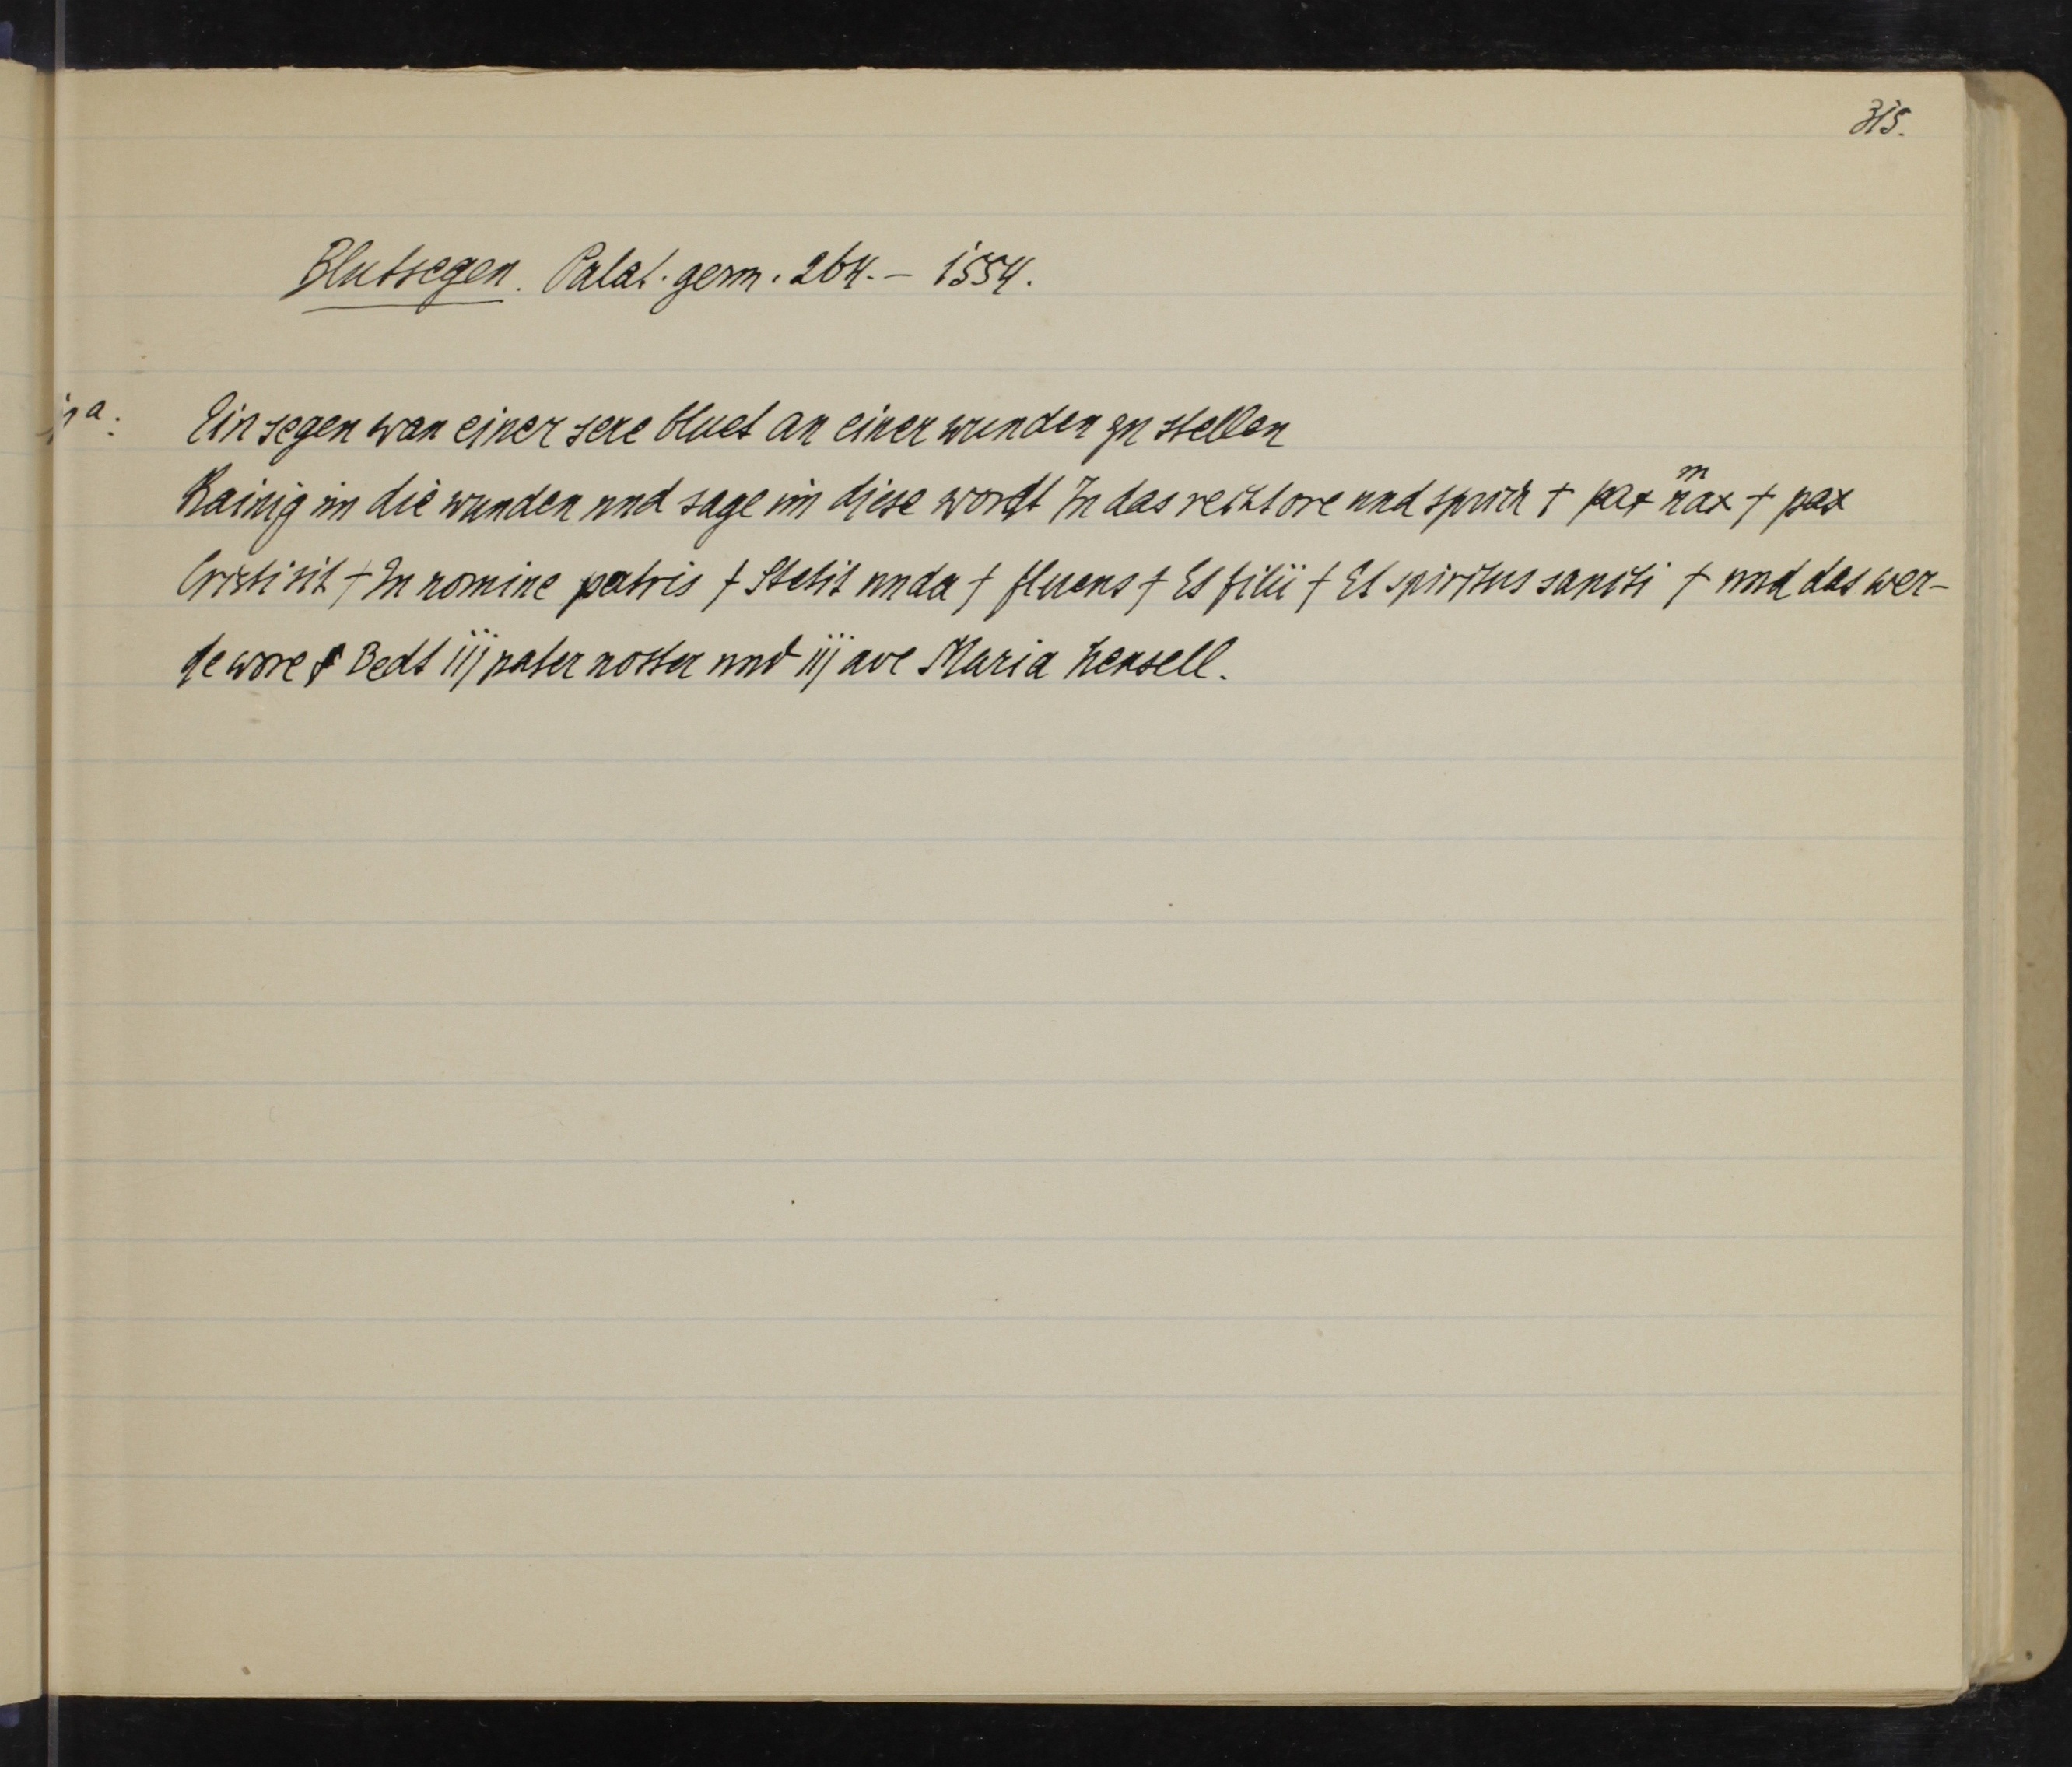 315.
Blutsegen. Palat. germ. 264. – 1554.
a. Ein segen wan einer sere bluet an einer wunden zu stellen
Rainig im die wunden und sage im diese wordt In das recht ore und sprich † pax nax m † pax
Cristi sit † In nomine patris † Stetit unda † fluens † Et filii † Et spiritus sancti † und das wer-
de wore † Bedt iij pater noster und iij ave Maria